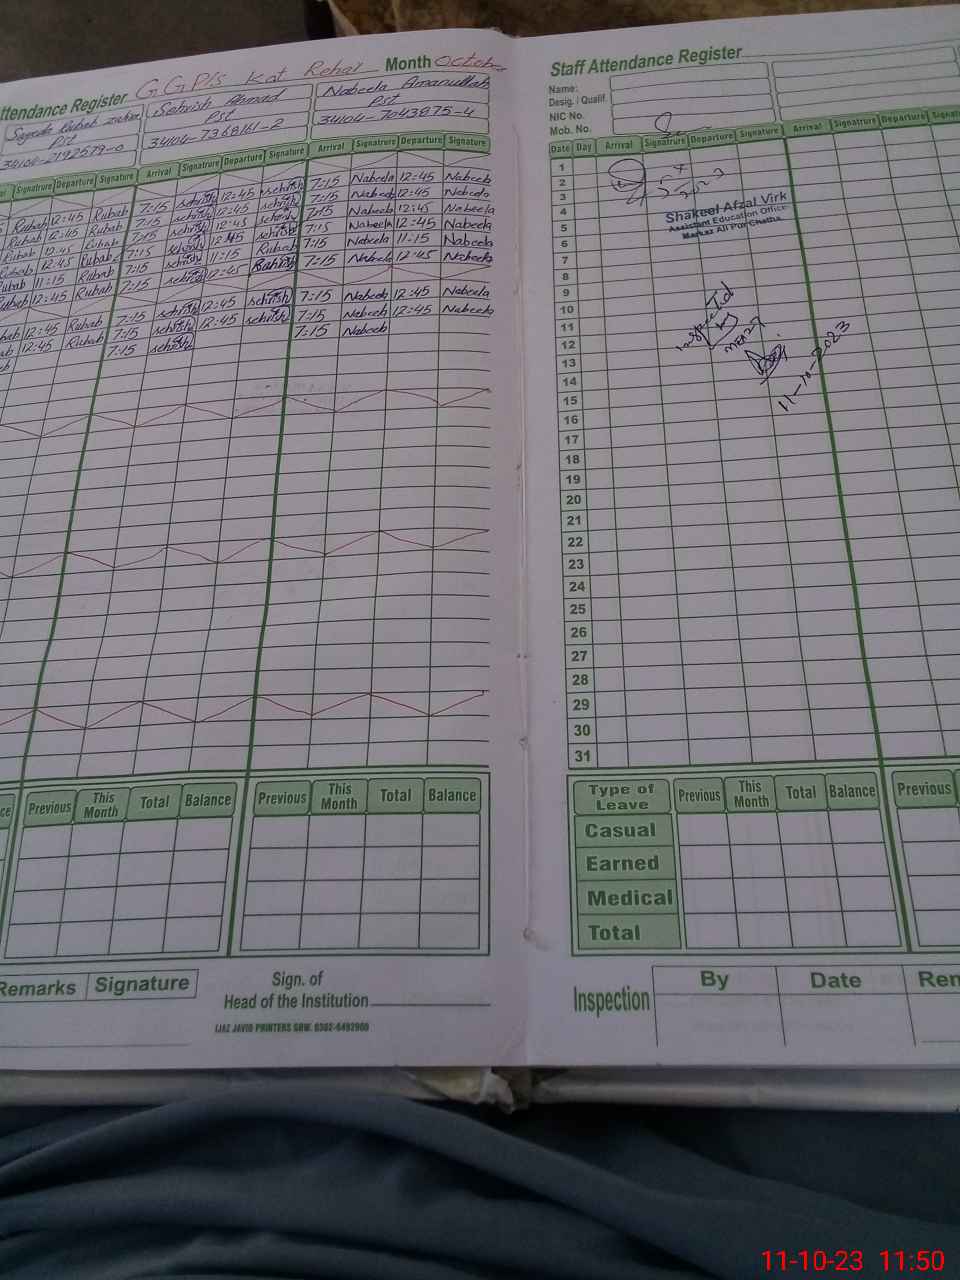 ttendance Register GGP/S Kot Rehar Month October
Syeda Rubab Sehrish Ahmad Nabeela Amanullah
Pst Pst Pst
34104-2192579-0 34104-7368161-2 34104-7043875-4
Signatrure Departure Signature Arrival Signatrure Departure Signature Arrival Signatrure Departure Signature
Rubab 12:45 Rubab 7:15 sehrish 12:45 sehrish 7:15 Nabeela 12:45 Nabeela
Rubab 12:45 Rubab 7:15 sehrish 12:45 sehrish 7:15 Nabeela 12:45 Nabeela
Rubab 12:45 Rubab 7:15 sehrish 12:45 sehrish 7:15 Nabeela 12:45 Nabeela
Rubab 12:45 Rubab 7:15 sehrish 12:45 sehrish 7:15 Nabeela 12:45 Nabeela
Rubab 11:15 Rubab 7:15 sehrish 11:15 Rubab 7:15 Nabeela 11:15 Nabeela
Rubab 12:45 Rubab 7:15 sehrish 12:45 7:15 Nabeela 12:45 Nabeela
12:45 Rubab 7:15 sehrish 12:45 sehrish 7:15 Nabeela 12:45 Nabeela
12:45 Rubab 7:15 sehrish 12:45 sehrish 7:15 Nabeela 12:45 Nabeela
7:15 sehrish 7:15 Nabeela
Previous This Month Total Balance Previous This Month Total Balance
Remarks Signature
Sign. of
Head of the Institution
IJAZ JAVID PRINTERS GRW. 0302-6492900
Staff Attendance Register
Name:
Desig. / Qualif.
NIC No.
Mob. No.
Date Day Arrival Signatrure Departure Signature Arrival Signatrure Departure
1
2
3
4
5
6
7
8
9
10
11
12
13
14
15
16
17
18
19
20
21
22
23
24
25
26
27
28
29
30
31
2023
Shakeel Afzal Virk
Assistant Education Officer
Markaz Ali Pur Chatha
Inspected
by
MEA27
11-10-2023
Type of Leave Previous This Month Total Balance Previous
Casual
Earned
Medical
Total
Inspection By Date Rem
11-10-23 11:50